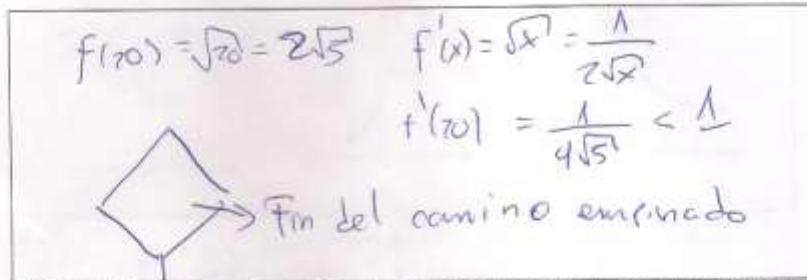 f(20) = √20 = 2√5 f'(x) = √x = 1/2√x
f'(20) = 1/4√5 < 1
Fin del camino empinado